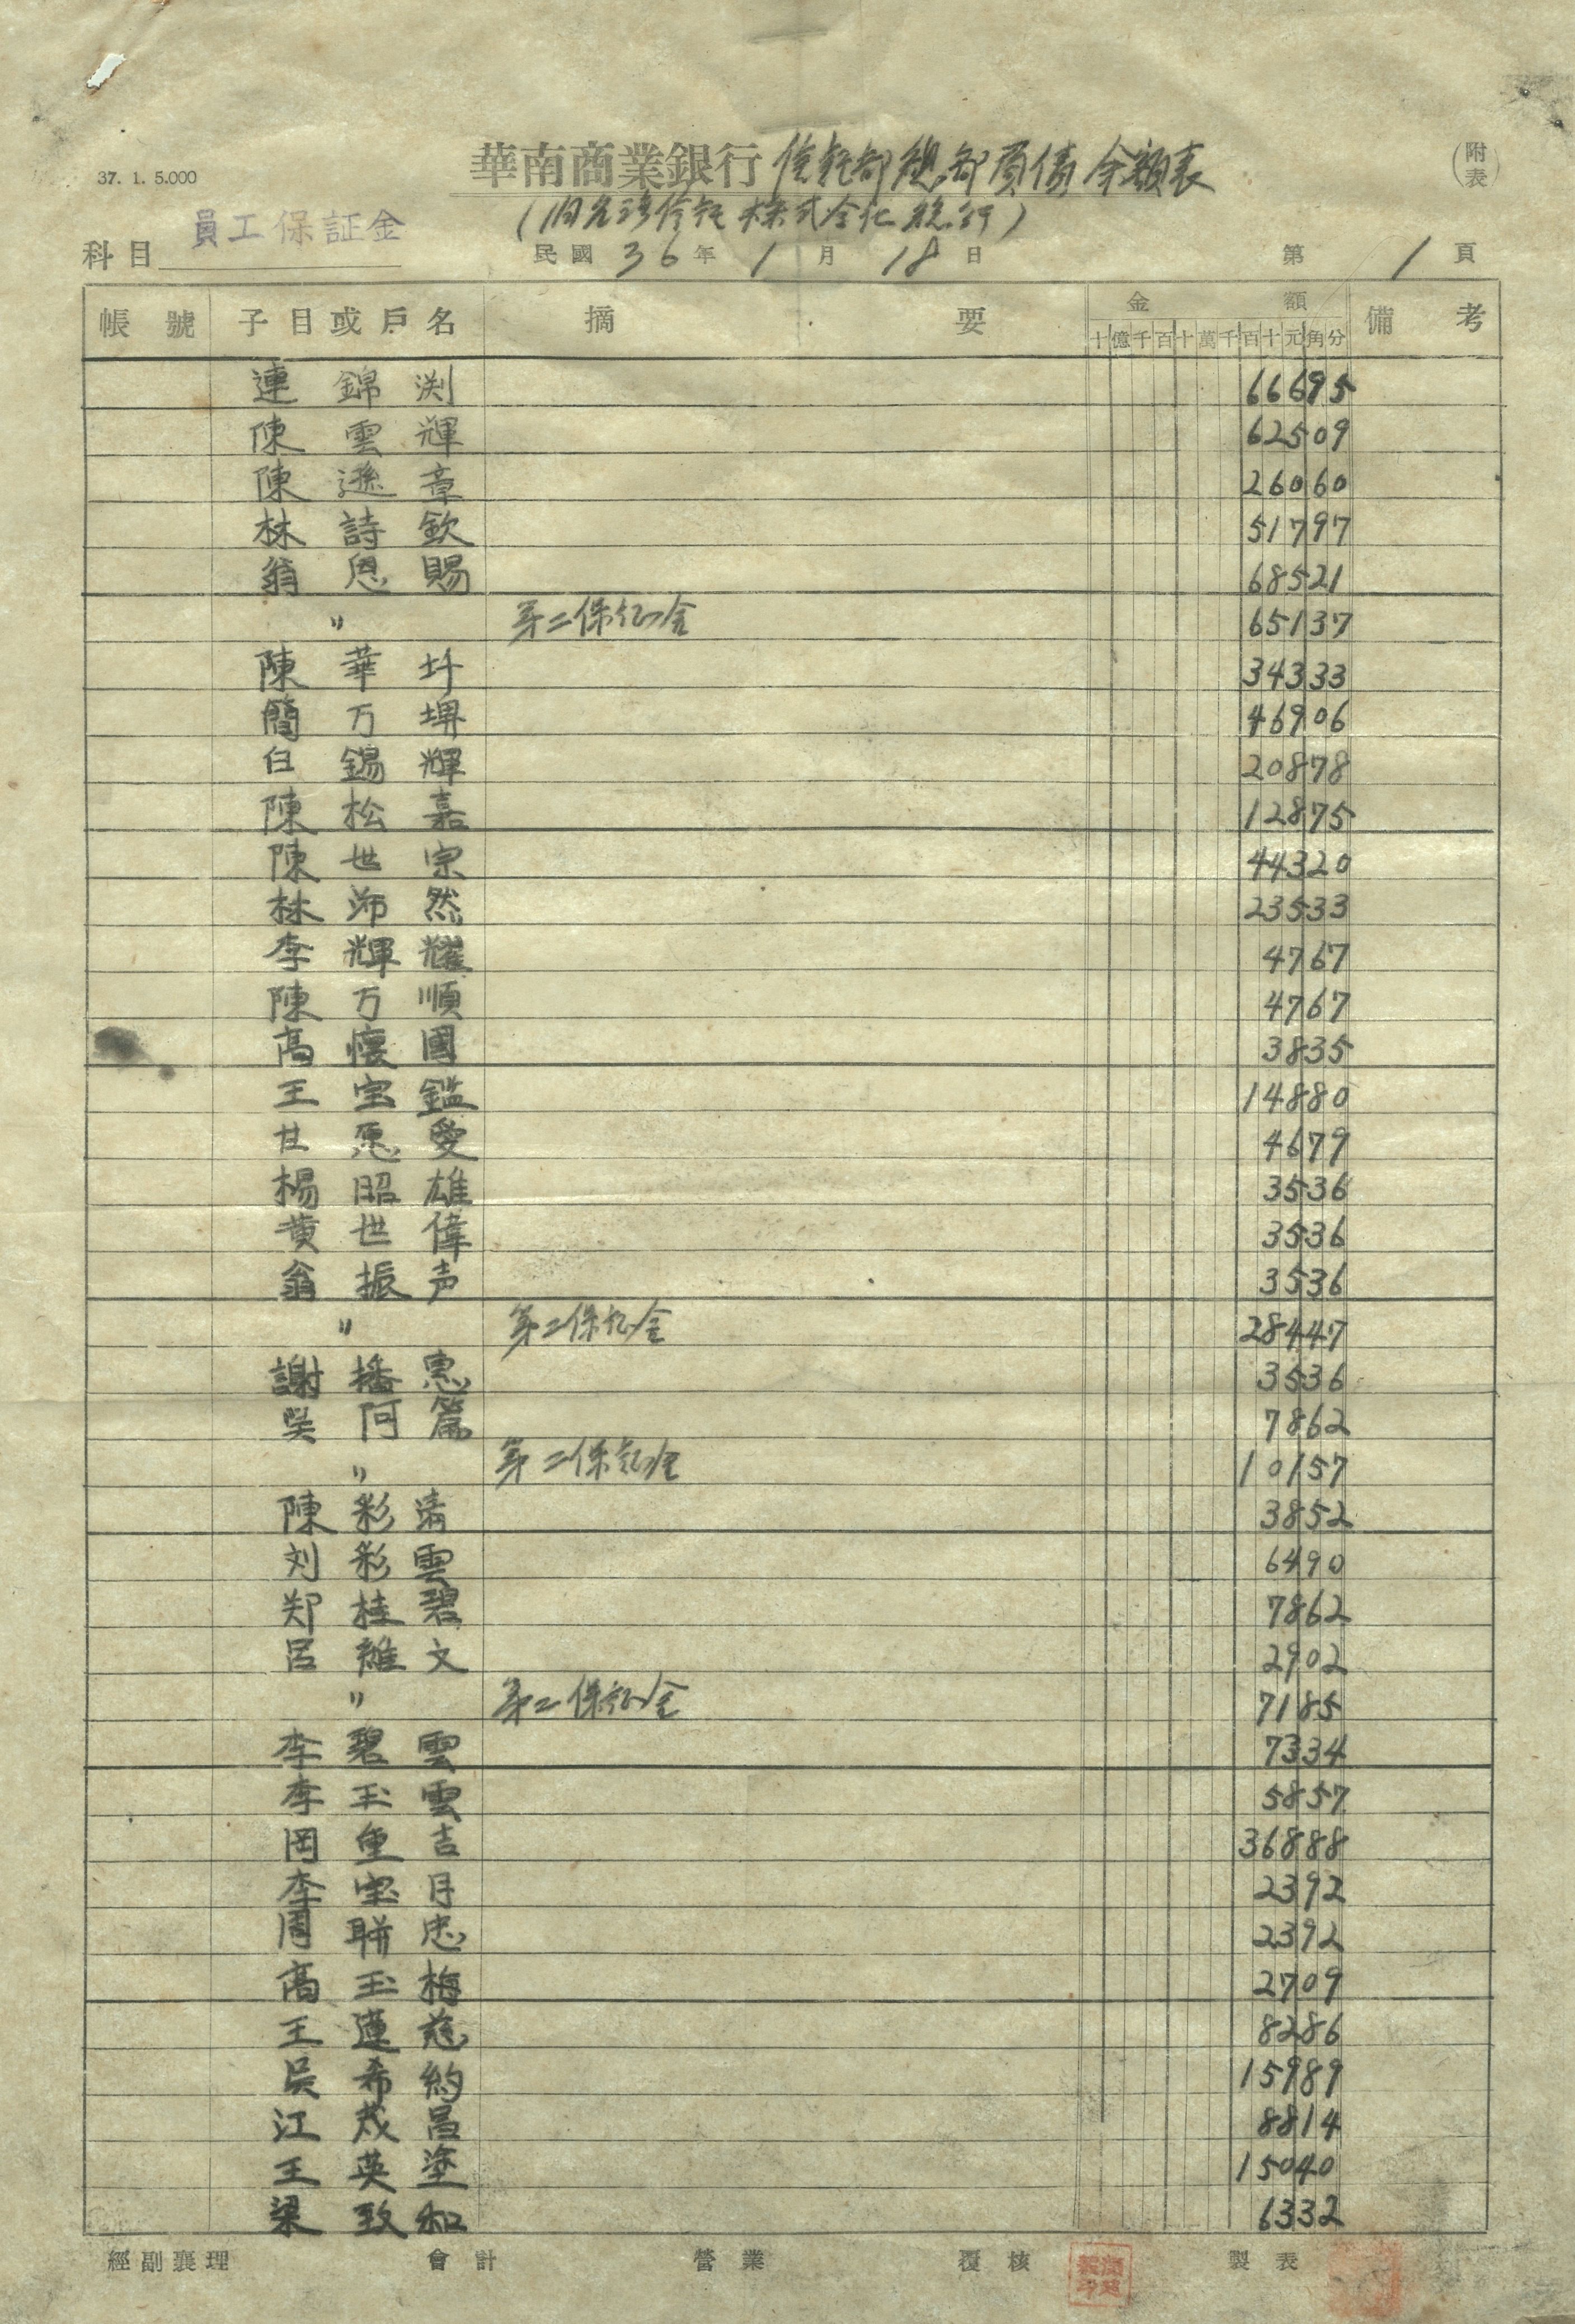 華南商業銀行 信託部總部負債余額表
(附表)
37. 1. 5.000
(旧台湾信託株式会社總行)
科目 員工保証金
民國 36 年 1 月 18 日 第 1 頁
帳號 子目或戶名 摘要 金額 備考
十億千百十萬千百十元角分
連錦渕 66695
陳雲輝 62509
陳遜章 26060
林詩欽 51797
翁恩賜 68521
〃 第二保証金 65137
陳華圩 34333
簡万堺 46906
白錫輝 20878
陳松嘉 12875
陳世宗 44320
林沛然 23533
李輝耀 4767
陳万順 4767
高懷國 3835
王宝鑑 14880
甘恩愛 4679
楊昭雄 3536
黄世偉 3536
翁振声 3536
〃 第二保証金 28447
謝播惠 3536
吳阿篇 7862
〃 第二保証金 10157
陳彩 3852
刘彩雲 6490
郑桂碧 7862
呂雅文 2902
〃 第二保証金 7185
李碧雲 7334
李玉雲 5857
岡重吉 36888
李宝月 2392
周聯忠 2392
高玉梅 2709
王蓮慈 8286
吳希約 15989
江茂昌 8814
王英塗 15040
梁致和 6332
經副襄理 會計 營業 覆核 製表